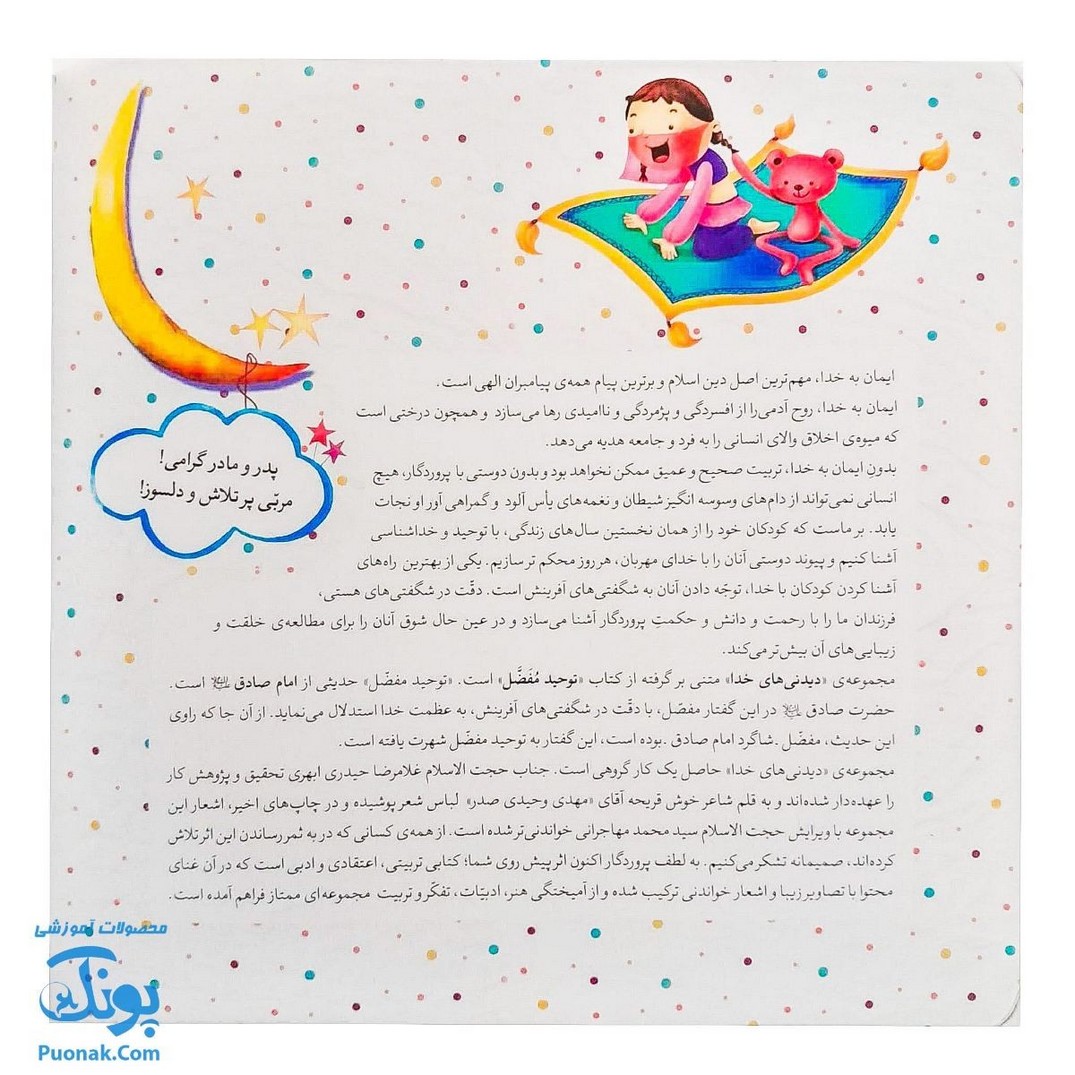 پدر و مادر گرامی!
مربّی پر تلاش و دلسوز!
ایمان به خدا، مهم‌ترین اصل دین اسلام و برترین پیام همه‌ی پیامبران الهی است.
ایمان به خدا، روح آدمی را از افسردگی و پژمردگی و ناامیدی رها می‌سازد و همچون درختی است
که میوه‌ی اخلاق والای انسانی را به فرد و جامعه هدیه می‌دهد.
بدونِ ایمان به خدا، تربیت صحیح و عمیق ممکن نخواهد بود و بدون دوستی با پروردگار، هیچ
انسانی نمی‌تواند از دام‌های وسوسه انگیز شیطان و نغمه‌های یأس آلود و گمراهی آور او نجات
یابد. بر ماست که کودکان خود را از همان نخستین سال‌های زندگی، با توحید و خداشناسی
آشنا کنیم و پیوند دوستی آنان را با خدای مهربان، هر روز محکم تر سازیم. یکی از بهترین راه‌های
آشنا کردن کودکان با خدا، توجّه دادن آنان به شگفتی‌های آفرینش است. دقّت در شگفتی‌های هستی،
فرزندان ما را با رحمت و دانش و حکمتِ پروردگار آشنا می‌سازد و در عین حال شوق آنان را برای مطالعه‌ی خلقت و
زیبایی‌های آن بیش‌تر می‌کند.
مجموعه‌ی «دیدنی‌های خدا» متنی بر گرفته از کتاب «توحید مُفَضَّل» است. «توحید مفضّل» حدیثی از امام صادق است.
حضرت صادق در این گفتار مفصّل، با دقّت در شگفتی‌های آفرینش، به عظمت خدا استدلال می‌نماید. از آن جا که راوی
این حدیث، مفضّل ـ شاگرد امام صادق ـ بوده است، این گفتار به توحید مفضّل شهرت یافته است.
مجموعه‌ی «دیدنی‌های خدا» حاصل یک کار گروهی است. جناب حجت الاسلام غلامرضا حیدری ابهری تحقیق و پژوهش کار
را عهده‌دار شده‌اند و به قلم شاعر خوش قریحه آقای «مهدی وحیدی صدر» لباس شعر پوشیده و در چاپ‌های اخیر، اشعار این
مجموعه با ویرایش حجت الاسلام سید محمد مهاجرانی خواندنی‌تر شده است. از همه‌ی کسانی که در به ثمر رساندن این اثر تلاش
کرده‌اند، صمیمانه تشکر می‌کنیم. به لطف پروردگار اکنون اثر پیش روی شما؛ کتابی تربیتی، اعتقادی و ادبی است که در آن غنای
محتوا با تصاویر زیبا و اشعار خواندنی ترکیب شده و از آمیختگی هنر، ادبیّات، تفکّر و تربیت مجموعه‌ای ممتاز فراهم آمده است.
محصولات آموزشی
پونک
Puonak.Com